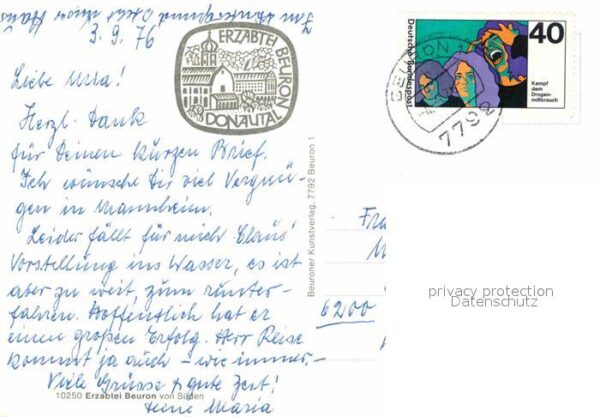 Im Hintergrund steht unser Haus
3.9.76
ERZABTEI BEURON
DONAUTAL
Liebe Ulla!
Herzl. Dank
für Deinen kurzen Brief.
Ich wünsche Dir viel Vergnü-
gen in Mannheim.
Leider fällt für mich Claus'
Vorstellung ins Wasser, es ist
aber zu weit, zum runter-
fahren. Hoffentlich hat er
einen großen Erfolg. Herr Reise
kommt ja auch – wie immer. –
Viele Grüsse & gute Zeit!
Deine Maria
10250 Erzabtei Beuron von Süden
Beuroner Kunstverlag, 7792 Beuron 1
Deutsche Bundespost
40
Kampf
dem
Drogen-
mißbrauch
BEURON
7792
Fra
6200
privacy protection
Datenschutz